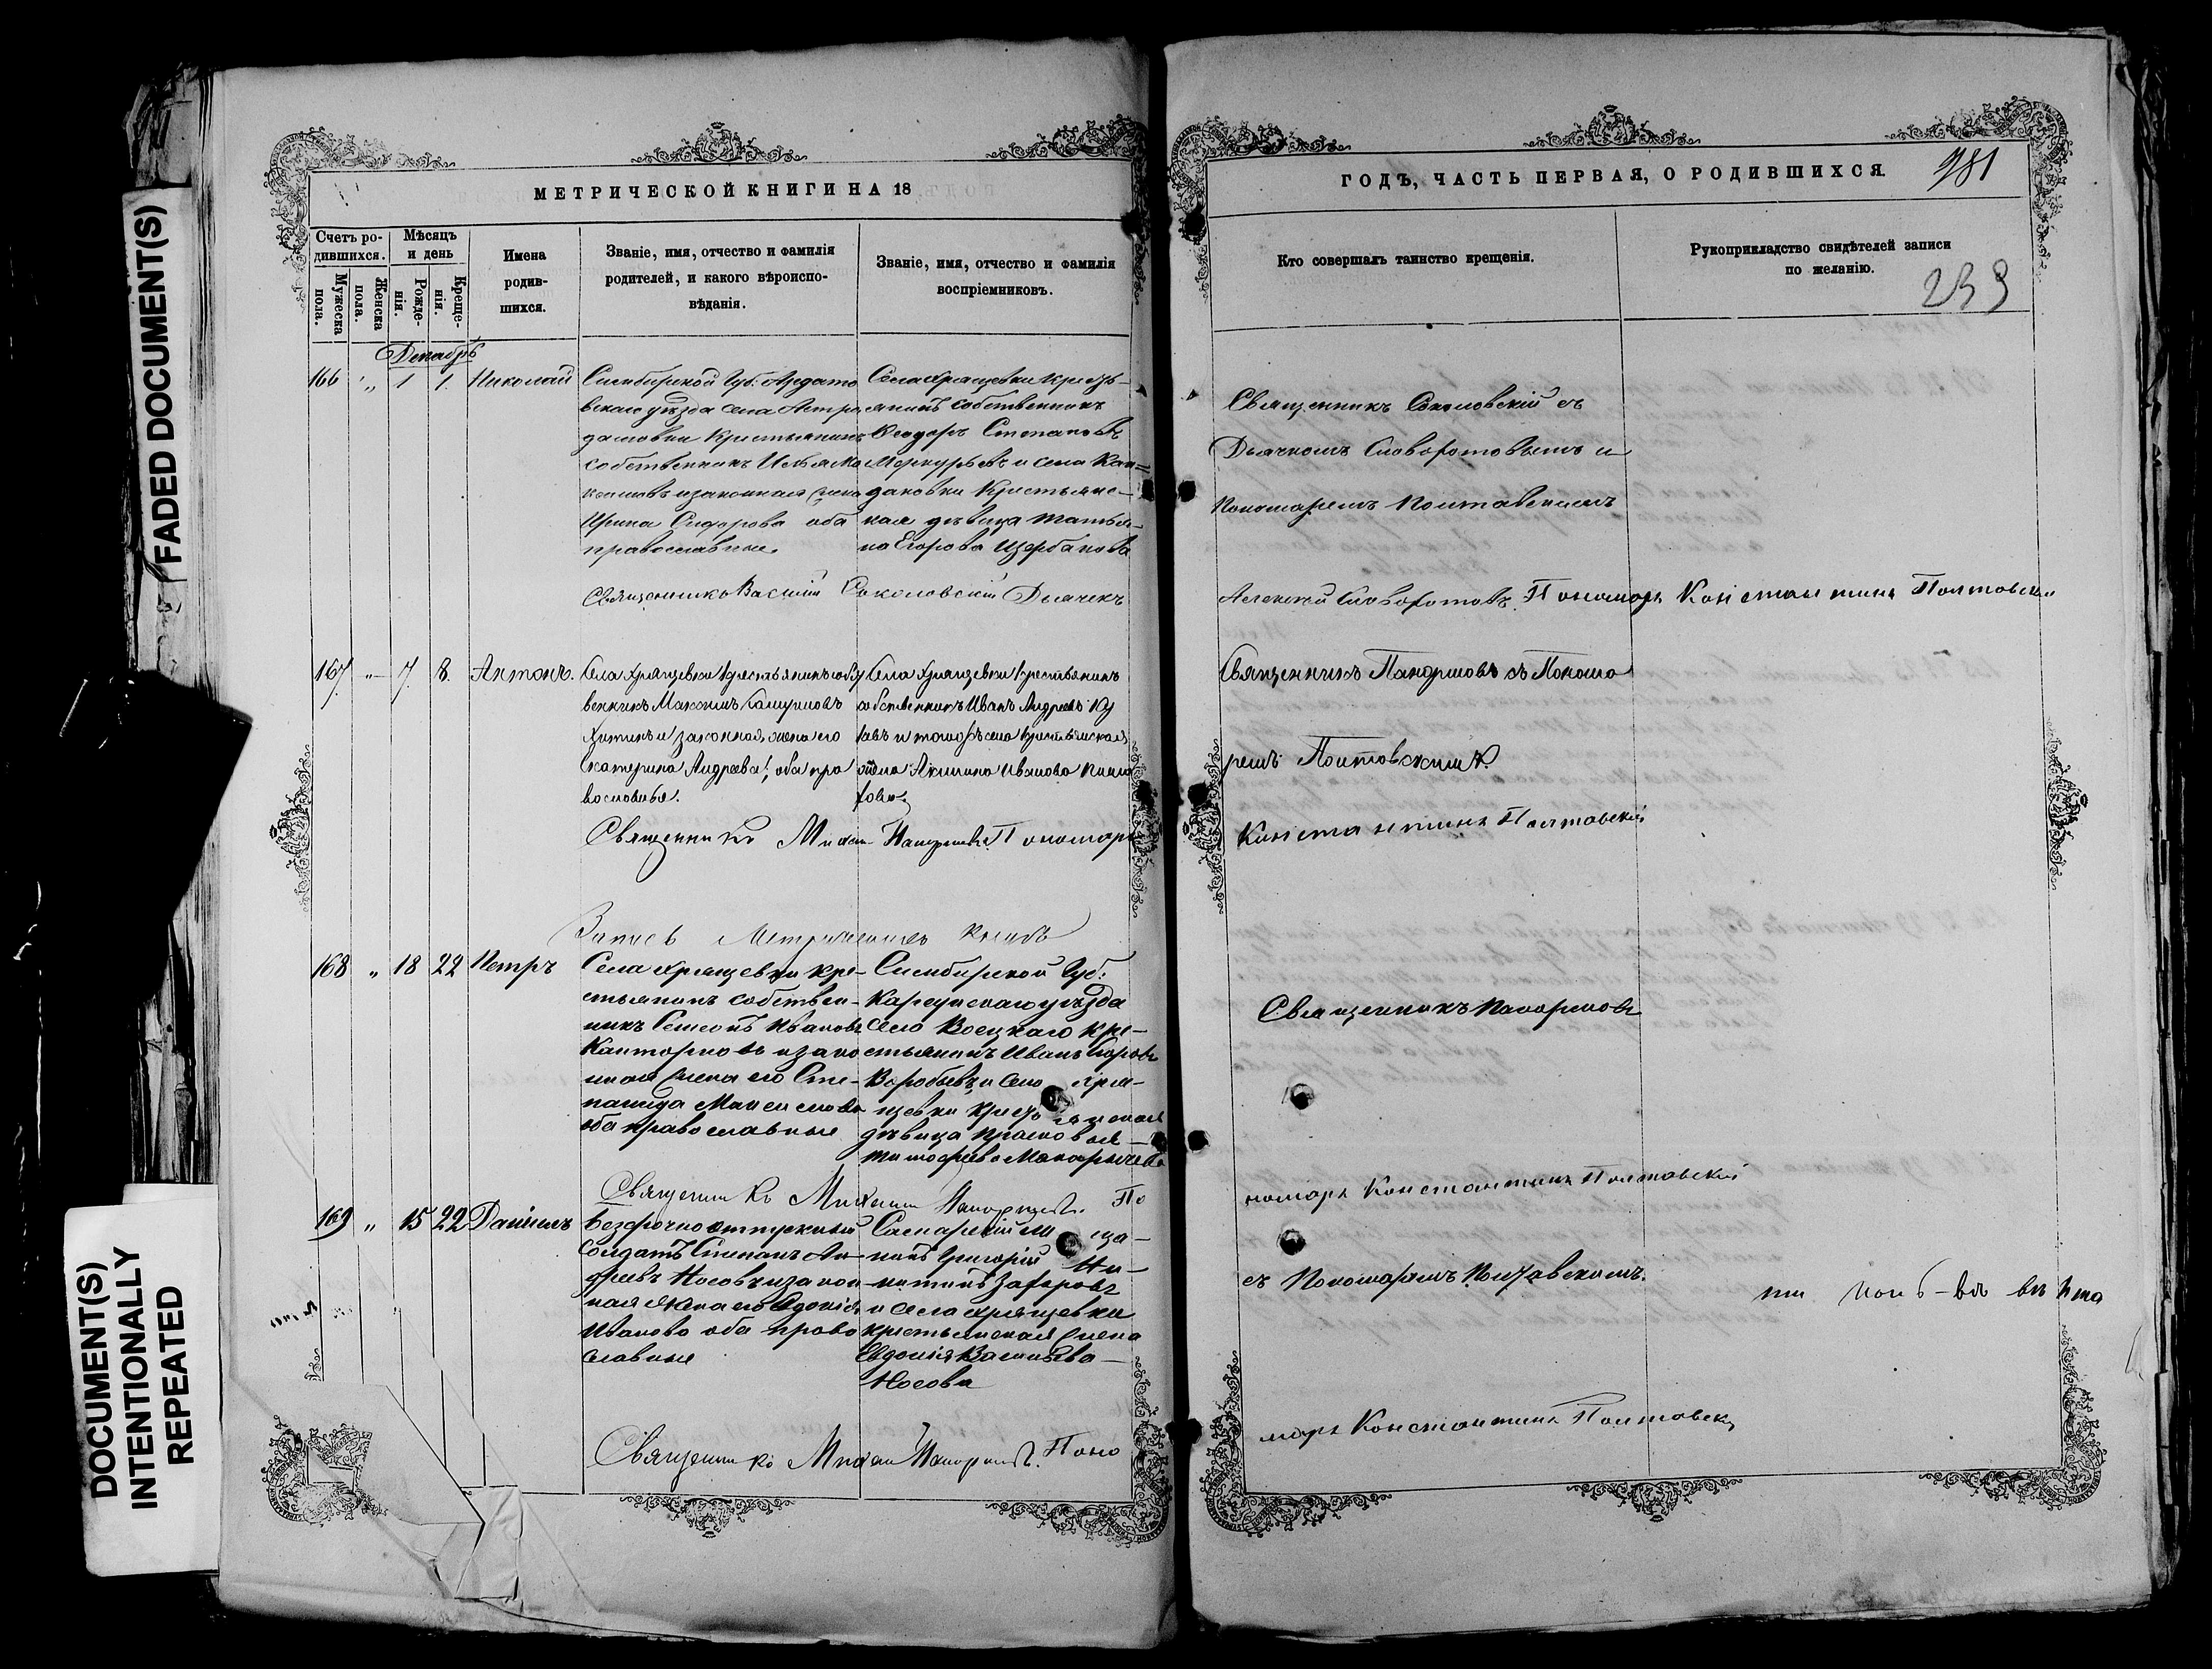 FADED DOCUMENT(S)
DOCUMENT(S)
INTENTIONALLY
REPEATED
МЕТРИЧЕСКОЙ КНИГИ НА 18
Счетъ ро-
дившихся.
Мужеска
пола.
Женска
пола.
Мѣсяцъ
и день
Рожде-
нія.
Креще-
нія.
Имена
родив-
шихся.
Званіе, имя, отчество и фамилія
родителей, и какого вѣроиспо-
вѣданія.
Званіе, имя, отчество и фамилія
воспріемниковъ.
Декабрь
166 " 1 1. Николай
Симбирской Губ. Ардато
вскаго уѣзда села Астра
дамовки Крестьянинъ
собственникъ Илья
и законная жена
Ирина Сидорова оба
православные.
Села Хрящевки Кресть-
янинъ собственникъ
Ѳеодоръ Степановъ
Меркурьевъ и села Кан-
даковки Крестьянс-
кая дѣвица Татья-
на Егорова Щербакова
Священникъ Василій Соколовскій Дьячекъ
167 " 7. 8. Антонъ.
Села Хрящевки Крестьянинъ собст
венникъ Максимъ
и законная жена его
Екатерина Андреева, оба пра
вославные.
Села Хрящевки Крестьянинъ
собственникъ Иванъ Андреевъ
и тогожъ села Крестьянская
Акилина Иванова
Священникъ Михаил Пономарь
Запись
168 " 18 22 Петръ
Села Хрящевки Кре-
стьянинъ собствен-
никъ Семенъ Ивановъ
и зако
нная жена его Сте-
панида Максимова
оба православные
Симбирской Губ.
Карсунскаго уѣзда
Село Воецкаго Кре-
стьянинъ Иванъ Егоровъ
Воробьевъ, и села Хря-
щевки Крестьянская
дѣвица Прасковья
Тимофеева Макарычева
Священникъ Михаил По
169 " 15 22 Даніилъ
Безсрочноотпускной
Солдатъ Степанъ Ан-
дреевъ Носовъ и закон
ная жена его Евдокія
Иванова оба право
славные
Самарскій мѣща-
нинъ Григорій Ни-
китинъ Захаровъ
и села Хрящевки
крестьянская жена
Евдокія Васильева
Носова
Священникъ Михаил Поно
ГОДЪ, ЧАСТЬ ПЕРВАЯ, О РОДИВШИХСЯ.
281
Кто совершалъ таинство крещенія.
Рукоприкладство свидѣтелей записи
по желанію.
239
Священникъ Соколовскій съ
Дьячкомъ Словоротовымъ и
Пономаремъ Полтавскимъ
Алексей Словоротовъ. Пономарь Константинъ Полтовский
Священникъ съ Понома
ремъ Полтовскимъ.
Константинъ Полтовский
Священникъ
номарь Константинъ Полтовский
съ Пономаремъ Полтавскимъ.
марь Константинъ Полтовски